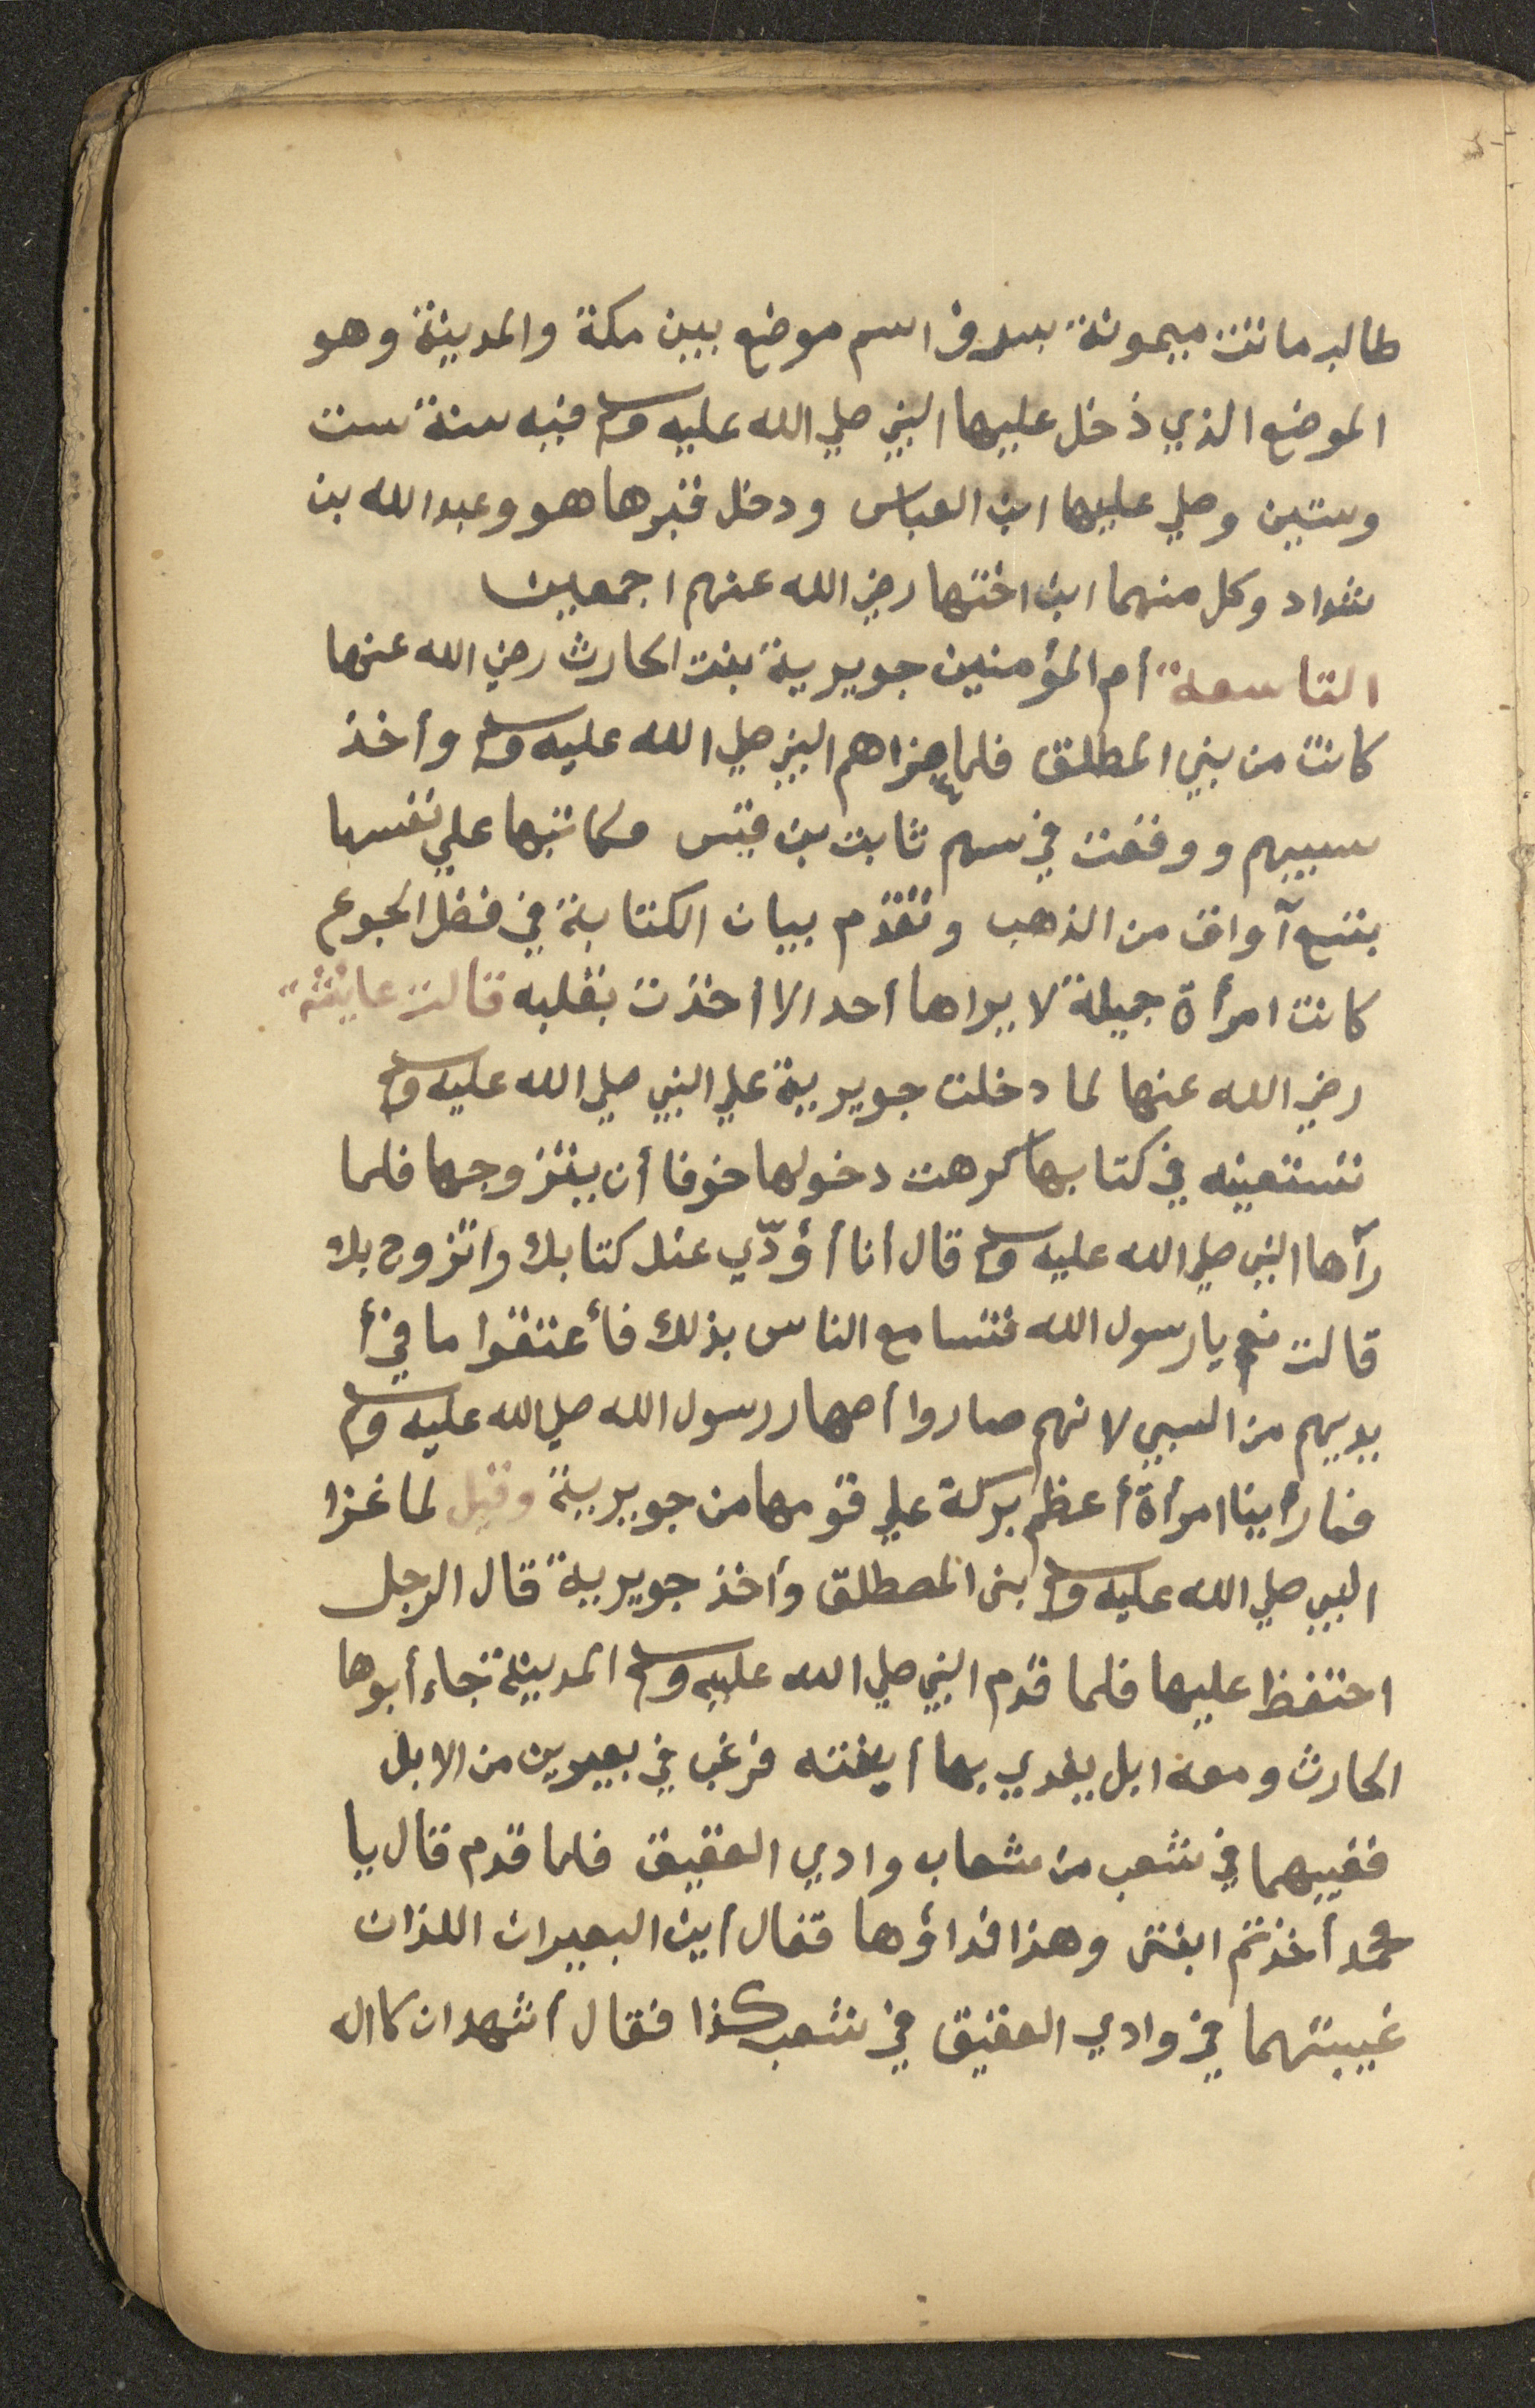 طالب ماتت ميمونة بسرف اسم موضع بين مكة والمدينة وهو
الموضع الذي دخل عليها النبي صلي الله عليه وسلم فيه سنة ست
وستين وصلي عليها ابن العباس ودخل قبرها هو وعبد الله بن
شداد وكل منهما ابن اختها رضي الله عنهم اجمعين
التاسعة أم المؤمنين جويرية بنت الحارث رضي الله عنها
كانت من بني المطلق فلما غزاهم النبي صلي الله عليه وسلم وأخذ
سبيهم ووقعت في سهم ثابت بن قيس فكاتبها علي نفسها
بتسع آواق من الذهب وتقدم بيان الكتابة في فضل الجوع
كانت امرأة جميلة لا يراها أحد الا أخذت بقلبه قالت عايشة
رضي الله عنها لما دخلت جويرية علي النبي صلي الله عليه وسلم
تستعينه في كتابها كرهت دخولها خوفا أن يتزوجها فلما
رآها النبي صلي الله عليه وسلم قال أنا أؤدّي عنك كتابك واتزوج بك
قالت نعم يا رسول الله فتسامع الناس بذلك فأعتقوا ما في أ
يديهم من السبي لانهم صاروا أصهار رسول الله صلي الله عليه وسلم
فما رأينا امرأة أعظم بركة علي قومها من جويرية وقيل لما غزا
النبي صلي الله عليه وسلم بني المصطلق وأخذ جويرية قال الرجل
احتفظ عليها فلما قدم النبي صلي الله عليه وسلم المدينة جاء أبوها
الحارث ومعه ابل يفدي بها ابنته فرغب في بعيرين من الابل
فغيبهما في شعب من شعاب وادي العقيق فلما قدم قال يا
محمد أخذتم ابنتي وهذا فداؤها فقال أين البعيران اللذان
غيبتهما في وادي العقيق في شعب كذا فقال أشهد ان لا اله